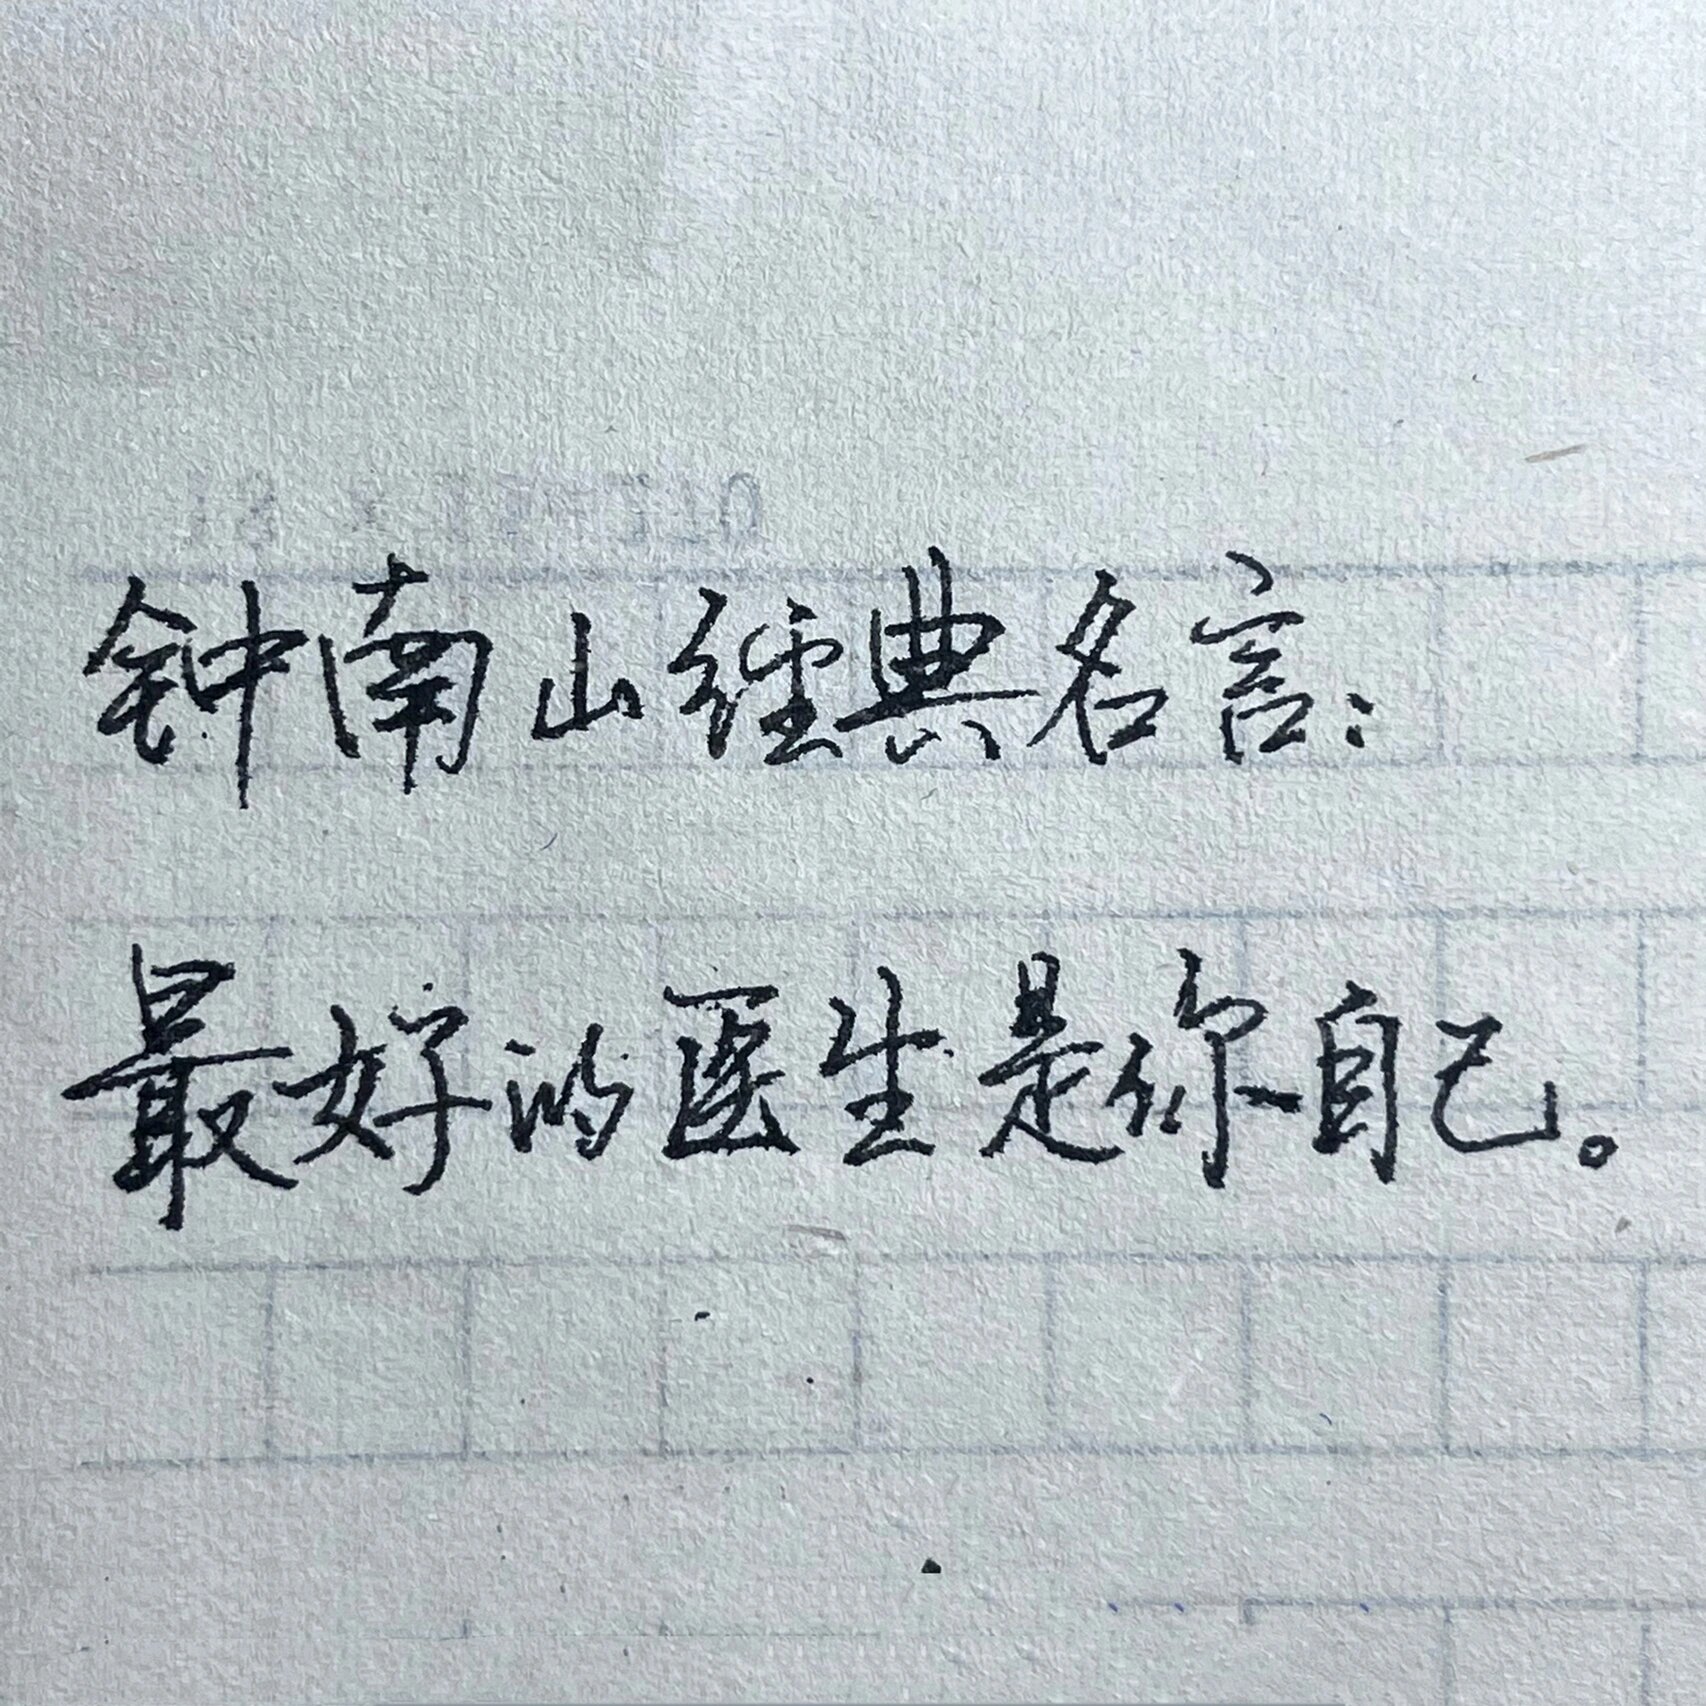 钟南山经典名言：
最好的医生是你自己。